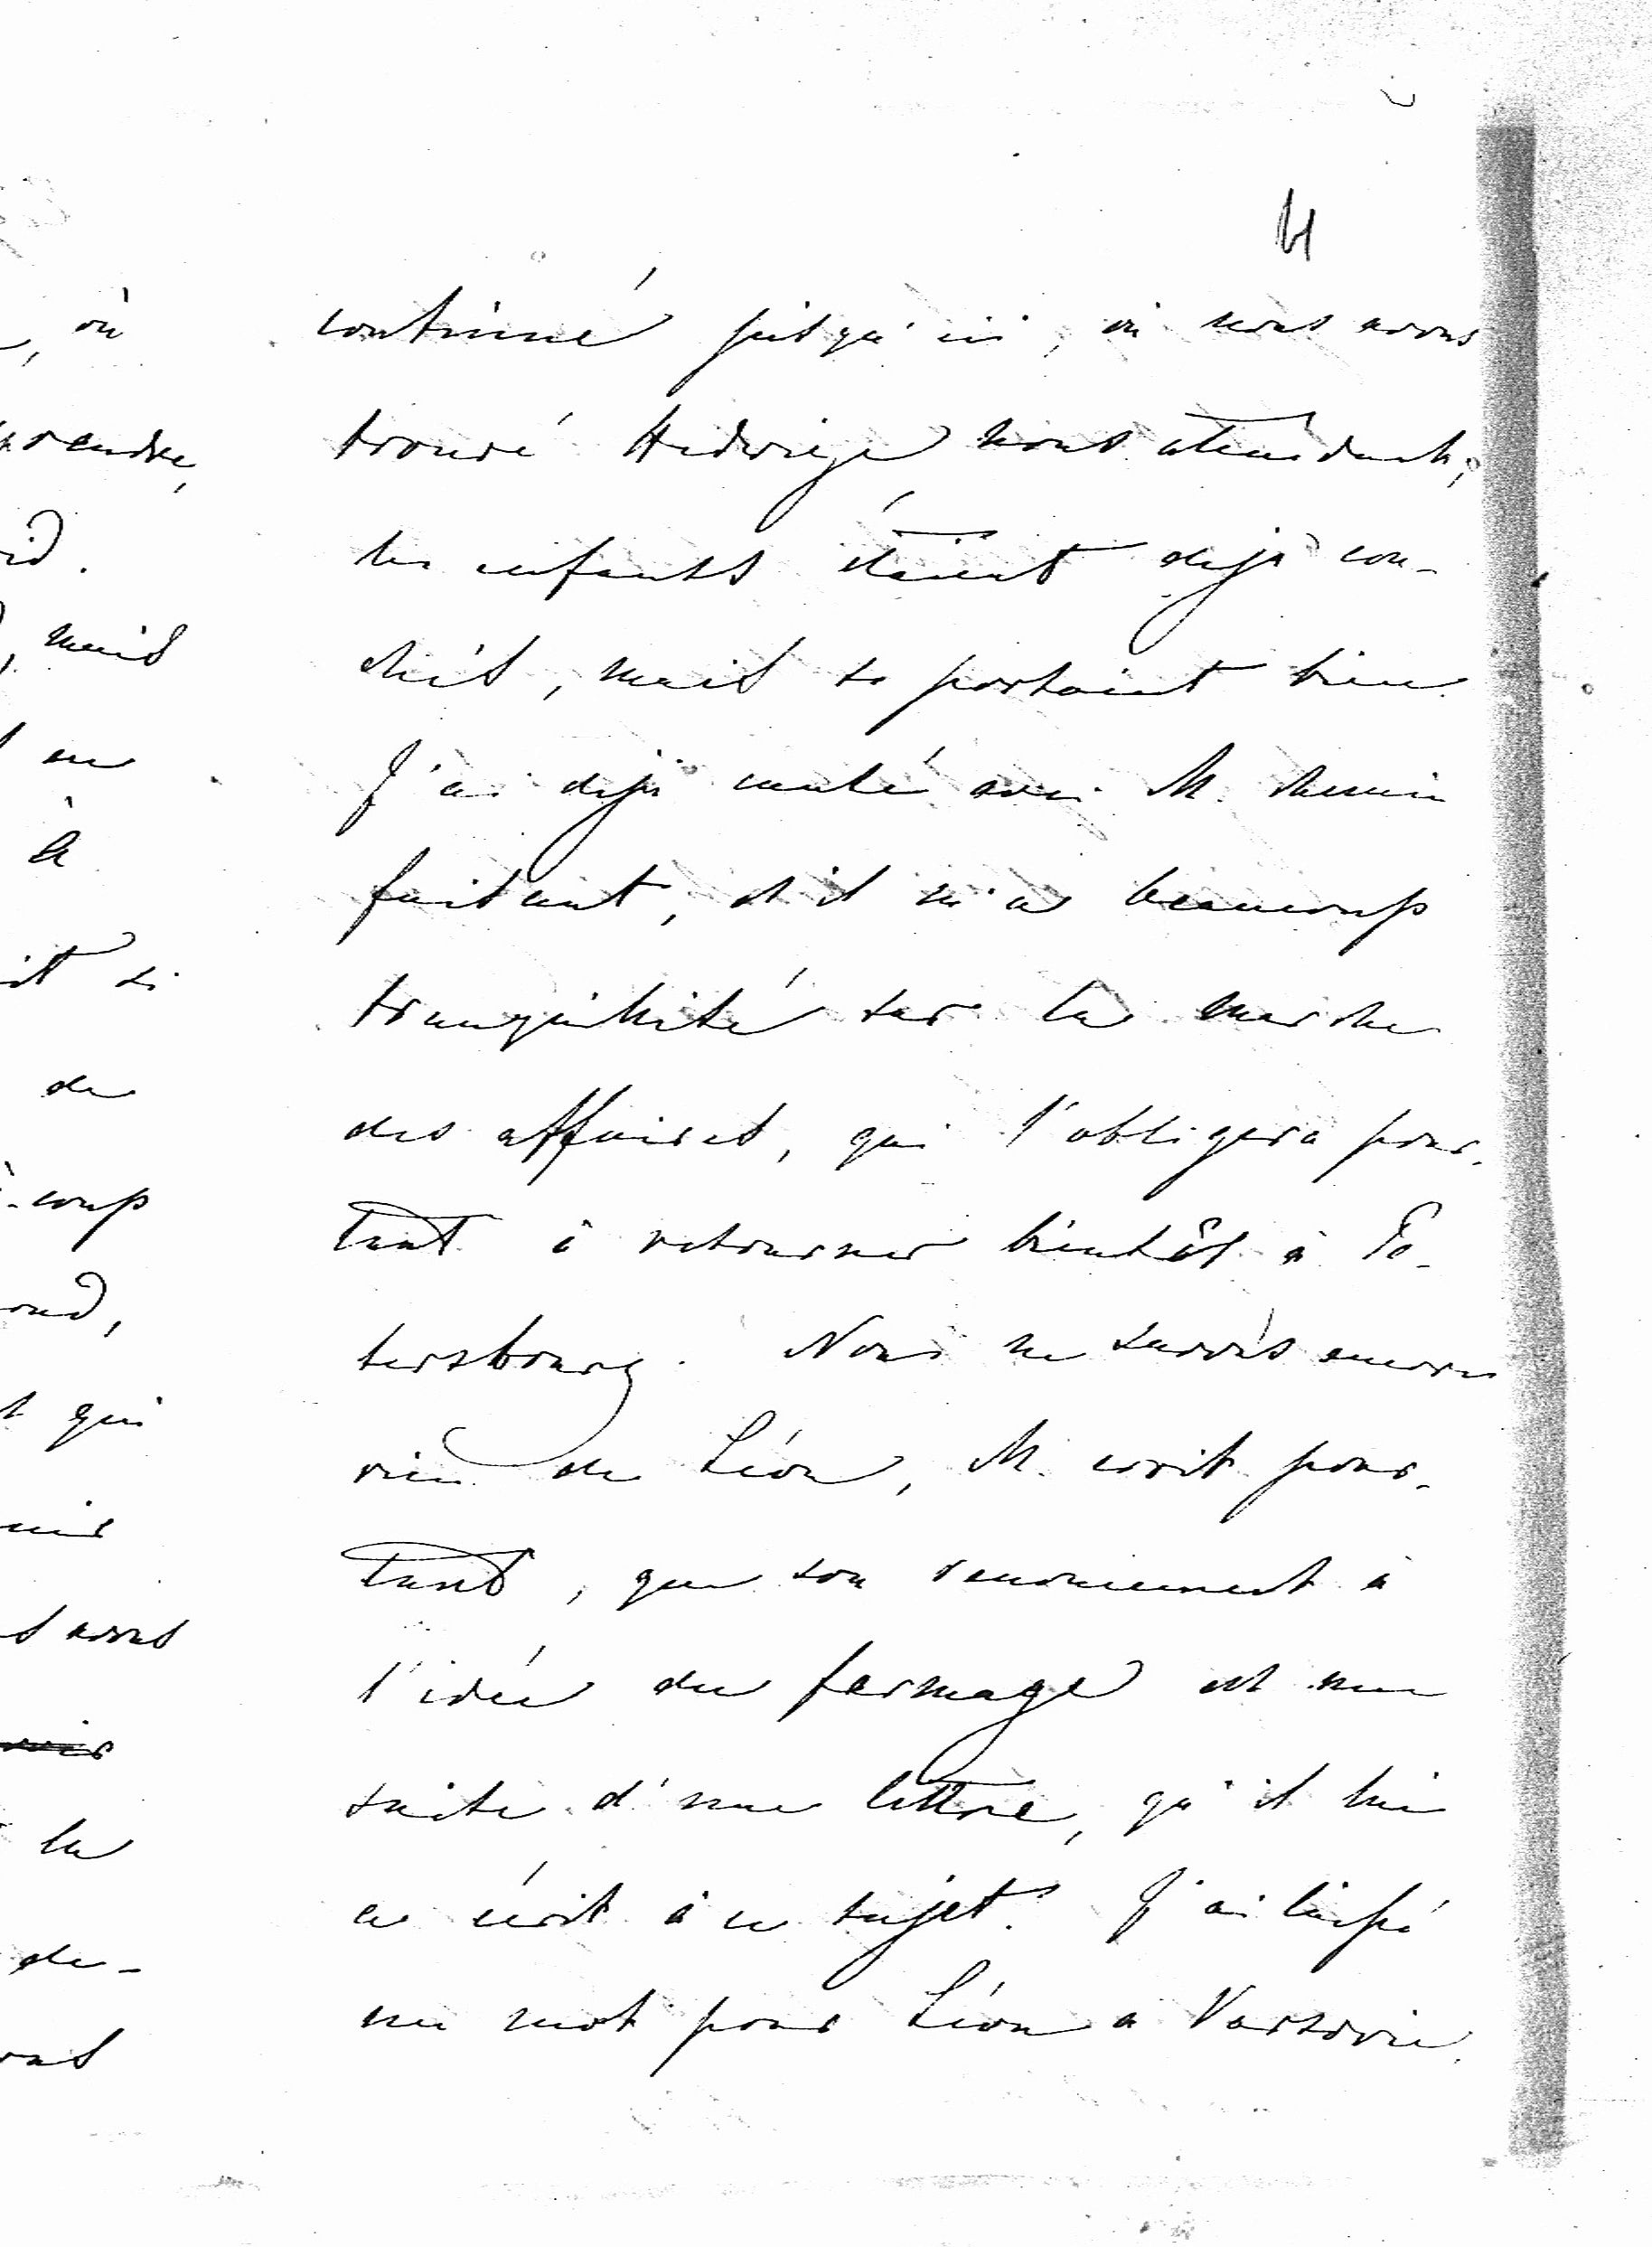 4
, où
prendre,
id.
, mais
en
à
it si
de
-coup
ond,
t qui
avons
la
de-
continué jusqu'ici, où nous avons
trouvé Hedwige nous attendant;
les enfants étaient dejà cou-
chés, mais se portaient bien.
J'ai dejà causé avec M. chemin
faisant, et il m'a beaucoup
tranquillisé sur la marche
des affaires, qui l'obligera pour-
tant à retourner bientôt à Pe-
tersbourg. Nous ne savons encore
rien de Léon, M. croit pour-
tant, que son renoncement à
l'idée du fermage est une
suite d'une lettre, qu'il lui
a écrit à ce sujet. J'ai laissé
un mot pour Léon a Varsovie.